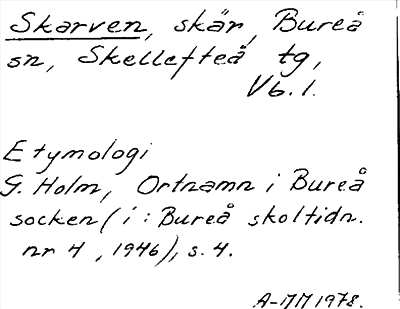 Skarven, skär, Bureå
sn, Skellefteå tg,
Vb. l.
Etymologi
G. Holm, Ortnamn i Bureå
socken (i: Bureå skoltidn.
nr 4, 1946), s. 4.
A-MM 1978.